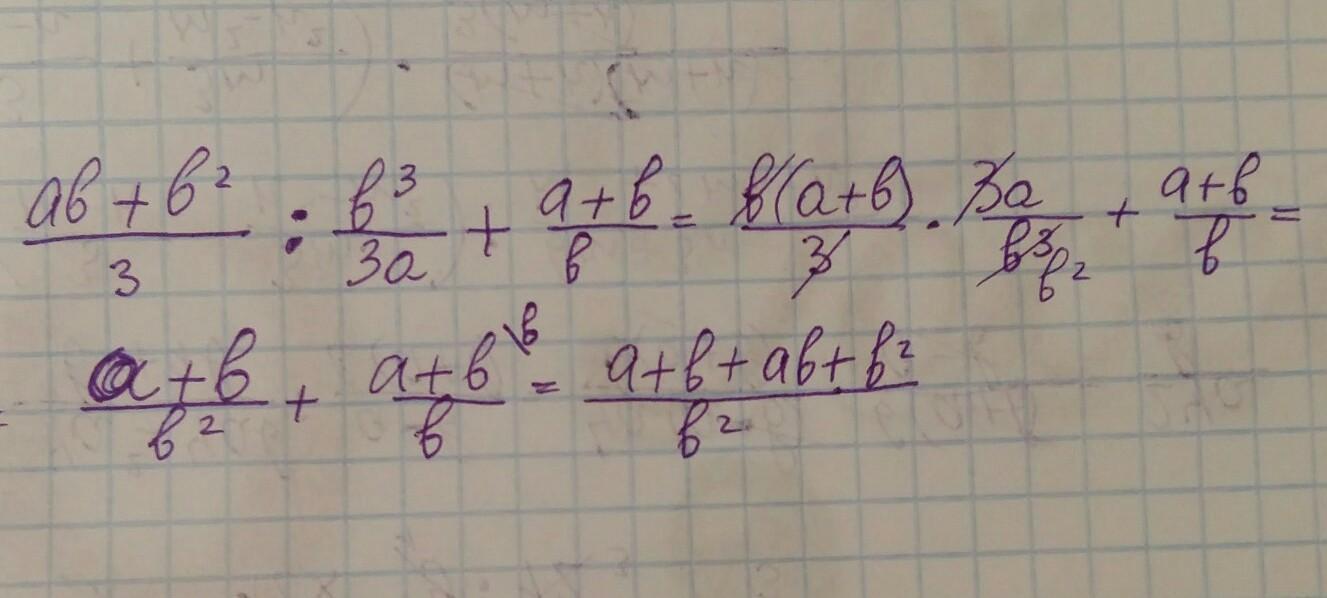 (ab + b²)/3 : b³/3a + (a + b)/b = b(a + b)/3 · 3a/b³ b² + (a + b)/b =
= (a + b)/b² + (a + b)/b \b = (a + b + ab + b²)/b²